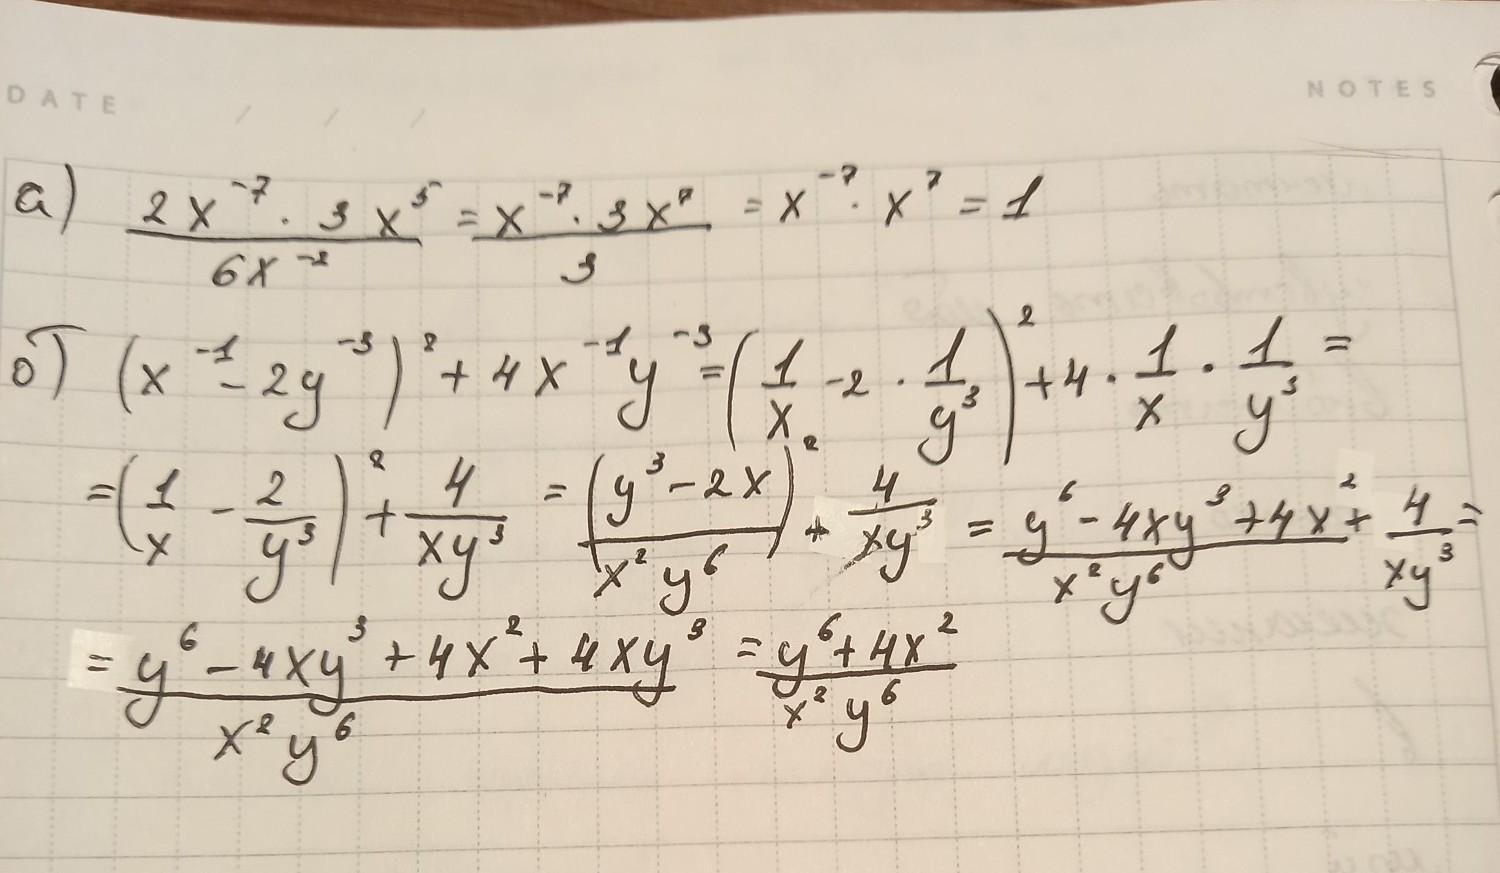 DATE / / / NOTES
а) (2x⁻⁷ · 3x⁵)/(6x⁻²) = (x⁻⁷ · 3x⁷)/3 = x⁻⁷ · x⁷ = 1
б) (x⁻¹ - 2y⁻³)² + 4x⁻¹y⁻³ = (1/x - 2 · 1/y³)² + 4 · 1/x · 1/y³ =
= (1/x - 2/y³)² + 4/(xy³) = (y³ - 2x)²/(x²y⁶) + 4/(xy³) = (y⁶ - 4xy³ + 4x²)/(x²y⁶) + 4/(xy³) =
= (y⁶ - 4xy³ + 4x² + 4xy³)/(x²y⁶) = (y⁶ + 4x²)/(x²y⁶)